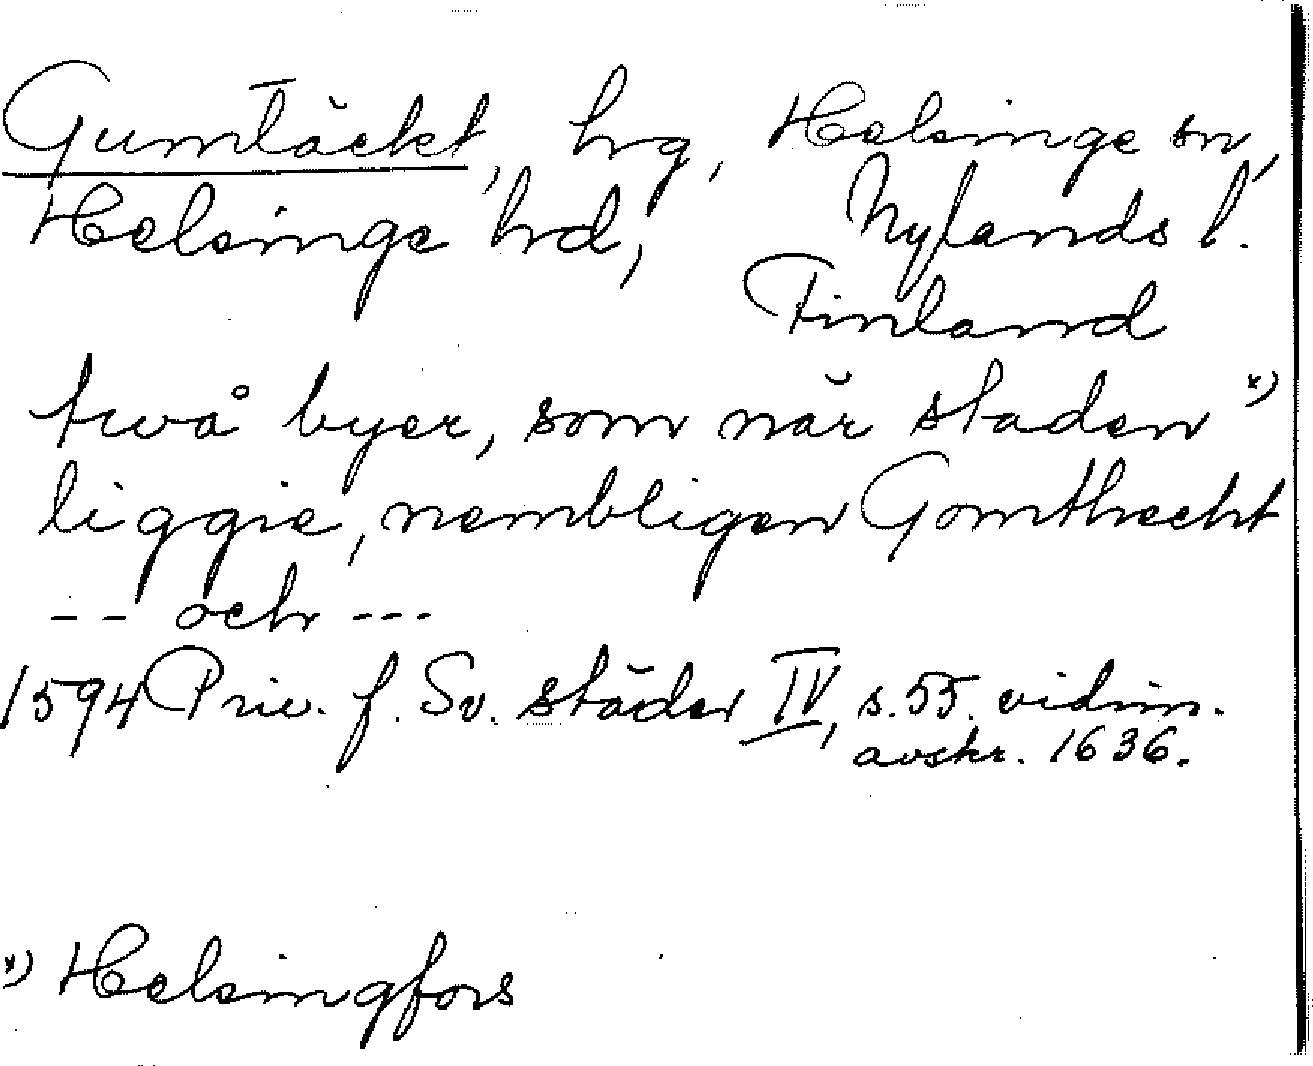 Gumtäckt, hrg, Helsinge sn,
Helsinge hd, Nylands l.
Finland
twå byer, som när staden *)
liggie, nembligen Gomthecht
-- och ---
1594 Priv. f. Sv. städer IV, s. 55. vidim.
avskr. 1636.
*) Helsingfors